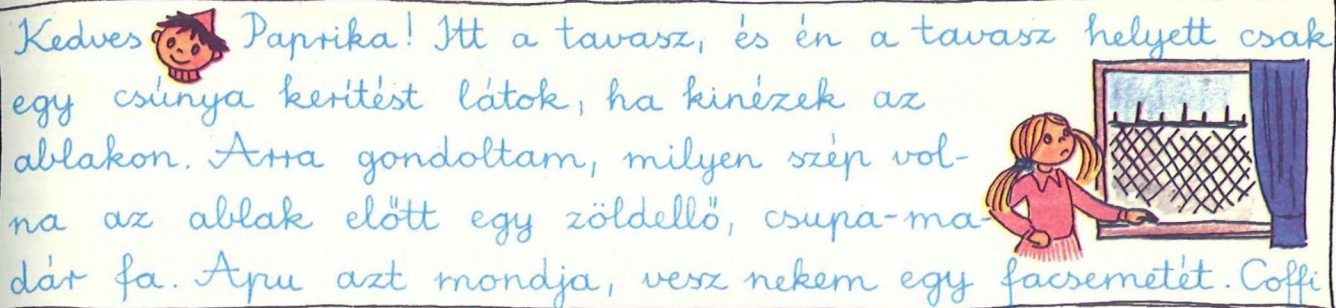 Kedves Paprika! Itt a tavasz, és én a tavasz helyett csak
egy csúnya kerítést látok, ha kinézek az
ablakon. Arra gondoltam, milyen szép vol-
na az ablak előtt egy zöldellő, csupa-ma-
dár fa. Apu azt mondja, vesz nekem egy facsemetét. Coffi